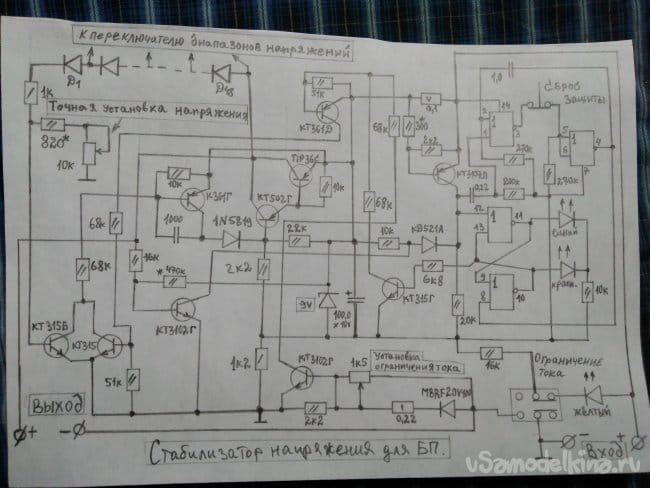 К переключателю диапазонов напряжений
Д1
Д18
1к
Точная установка напряжения
820*
10к
51к
КТ361Д
68к
300*
0,1
2к2
1,0
14
2
1
3
Сброс
защиты
5
6
4
7
270к
270к
0,22
200к
КТ3107Л
TIP36C
10к
10к
К361Г
КТ502Г
1000
1N5819
22к
10к
КД521А
68к
68к
68к
16к
*470к
2к2
9V
100,0
х 16v
КТ315Г
6к8
12
13
11
9
8
10
синий
красн.
10к
20к
КТ315Б
КТ315
КТ3102Г
51к
1к2
КТ3102Г
1к5
Установка
ограничения тока
2к2
0,22
MBRF20V100
16к
Ограничение
тока
жёлтый
Выход
+
−
Вход
−
+
Стабилизатор напряжения для БП.
vSamodelkina.ru